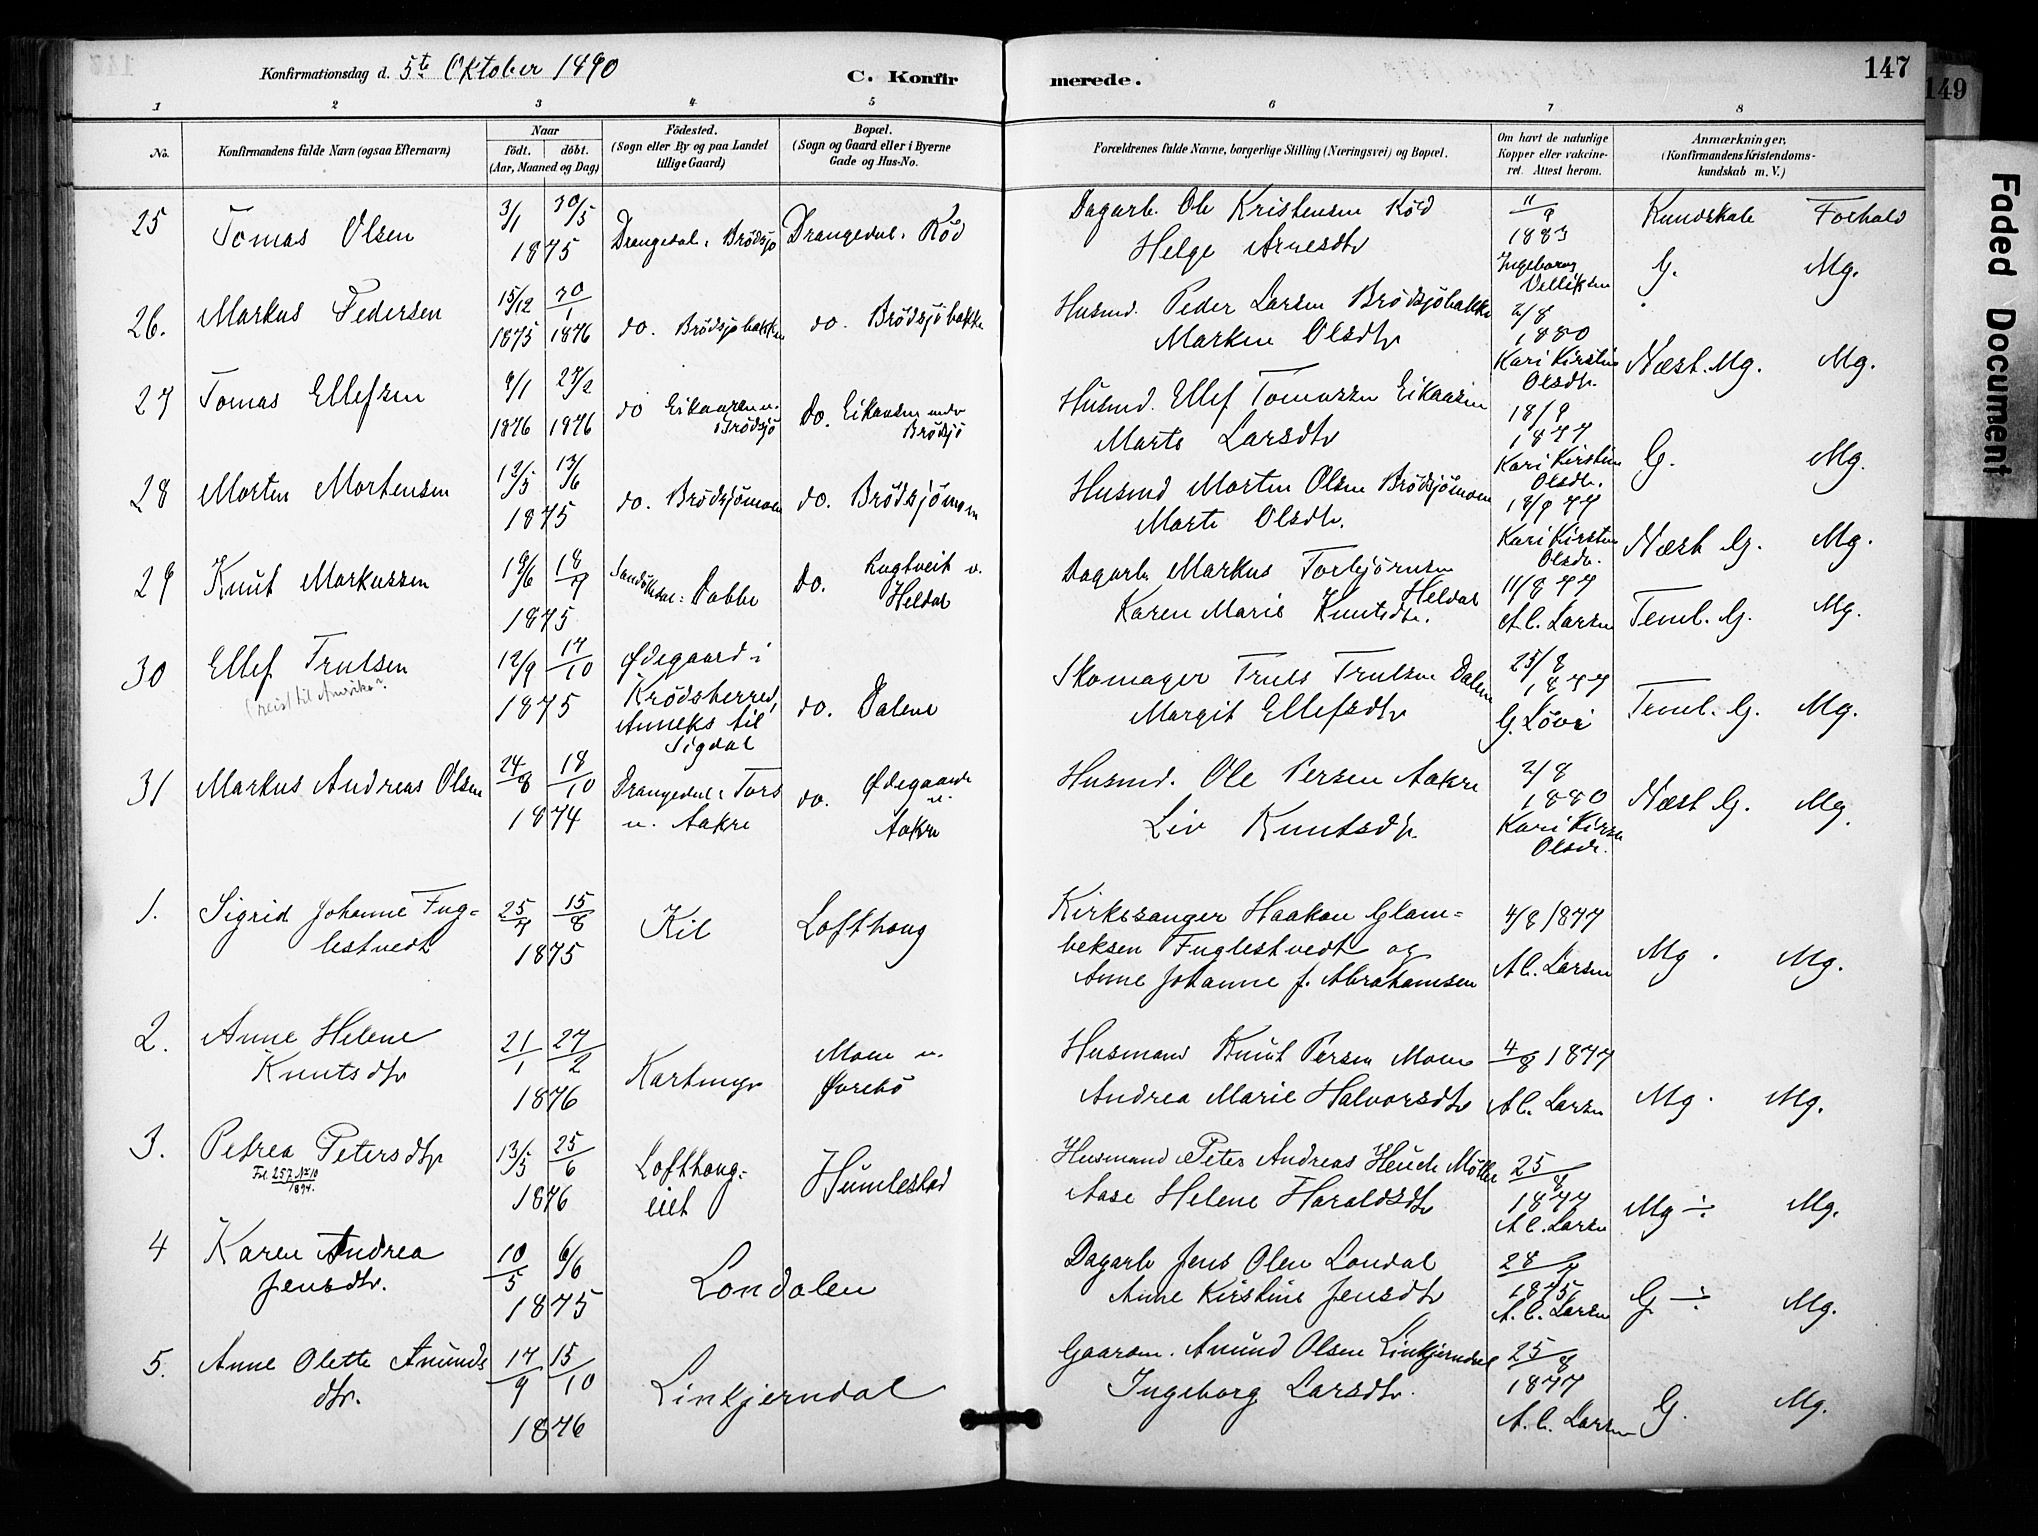 Konfirmationsdag d. 5te Oktober 1890
C. Konfir
merede.
147
149
Faded Document
1 2 3 4 5 6 7 8
No.
Konfirmandens fulde Navn (ogsaa Efternavn)
Naar
födt. döbt.
(Aar, Maaned og Dag)
Födested.
(Sogn eller By og paa Landet
tillige Gaard)
Bopæl.
(Sogn og Gaard eller i Byerne
Gade og Hus-No.
Forældrenes fulde Navne, borgerlige Stilling (Næringsvei) og Bopæl.
Om havt de naturlige
Kopper eller vakcine-
ret. Attest herom.
Anmærkninger.
(Konfirmandens Kristendoms-
kundskab m. V.)
25 Tomas Olsen 3/1 30/5 1875 Drangedal: Brödsjö Drangedal. Röd
Dagarb. Ole Kristensen Röd
Helge Arnesdtr
11/9 1883
Ingeborg
Kundskab Forhold
G. Mg.
26. Markus Pedersen 15/12 1875 30/1 1876 do. Brödsjöbakken do. Brödsjöbakke
Husmd. Peder Larsen Brödsjöbakke
Marken Olsdtr
2/8 1880
Kari Kirstin
Olsdtr.
Næst. Mg. Mg.
27 Tomas Ellefsen 9/1 1876 27/2 1876 do Eikaasen u. Brödsjö Do. Eikaasen under Brödsjö
Husmd. Ellef Tomassen Eikaasen
Marte Larsdtr
18/9 1877
Kari Kirstin
Olsdtr.
G. Mg.
28 Morten Mortensen 12/5 13/6 1875 do. Brödsjömoen do. Brödsjömoen
Husmd Morten Olsen Brödsjömoen
Marte Olsdtr.
18/9 77
Kari Kirstin
Olsdtr.
Næst G. Mg.
29 Knut Markussen 19/6 18/7 1875 Sandökedal: Dobbe Do. Lugtveit u. Heldal
Dagarb. Markus Torbjörnsen Heldal
Karen Marie Knutsdtr.
11/8 77
A. C. Larsen
Teml. G. Mg.
30 Ellef Trulsen 12/9 17/10 1875
(reist til Amerika?
Ødegaard i
Krödsherred,
Anneks til
Sigdal
do. Dalene
Skomager Truls Trulsen Dalene
Margit Ellefsdtr
25/8 1877
G. Lövi
Teml. G. Mg.
31 Markus Andreas Olsen 24/8 18/10 1874
Drangedal: Tors
u. Aakre
do. Ødegaarde
u.
Aakre
Husmd. Ole Persen Aakre
Liv Knutsdtr
2/8 1880
Kari Kirsn
Olsdtr.
Næst G. Mg.
1. Sigrid Johanne Fug=
lestvedt
25/7 15/8 1875 Kil Lofthoug
Kirkesanger Haakon Glam=
beksen Fuglestvedt og
Anne Johanne f. Abrahamsen
4/8 1877
A C. Larsen
Mg. Mg.
2. Anne Helene
Knutsdtr
21/1 27/2 1876 Kartmyr Moen u.
Øvrebö
Husmand Knut Persen Moen
Andrea Marie Halvorsdtr
4/8 1877
A C. Larsen
Mg. Mg.
3. Petrea Petersdtr
Fol. 257. No 10
1894.
13/5 25/6 1876 Lofthoug=
eiet
Humlestad
Husmand Peter Andreas Heuch Möller
Aase Helene Haraldsdtr
25/8 1877
A C. Larsen
Mg ÷ Mg.
4 Karen Andrea
Jensdtr.
10/5 6/6 1875 Londalen
Dagarb Jens Olen Londal
Anne Kirstine Jensdtr
28/9 1875
A. C. Larsen
G ÷ Mg.
5. Anne Olette Anunds
dtr.
17/9 15/10 1876 Linkjerndal
Gaarom. Anund Olsen Linkjerndal
Ingeborg Larsdtr.
25/8 1877
A. C. Larsen
G. Mg.